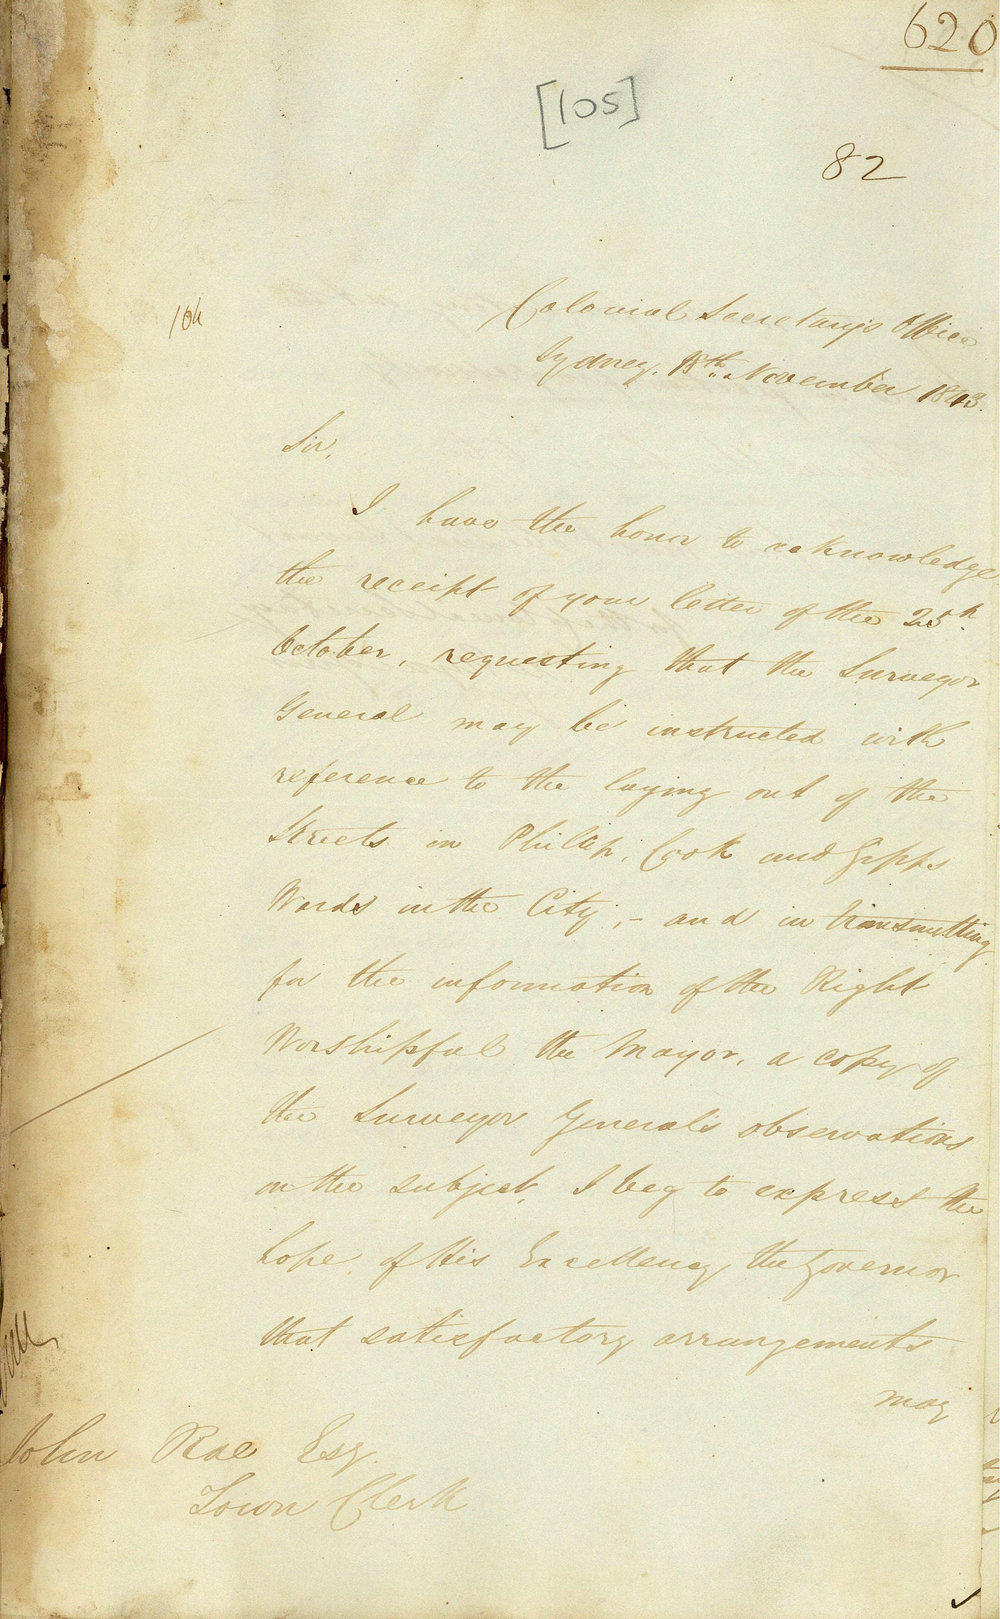 620
[105]
82
104
Colonial Secretary's Office
Sydney. 18th. November 1843.
Sir,
I have the honor to acknowledge
the receipt of your letter of the 25th.
October, requesting that the Surveyor
General may be instructed with
reference to the laying out of the
Streets in Phillip, Cook and Gipps
Wards in the City, - and in transmitting
for the information of the Right
Worshipful the Mayor, a copy of
the Surveyor General's observations
on the subject, I beg to express the
hope of His Excellency the Governor
that satisfactory arrangements
may
John Rae Esq.
Town Clerk